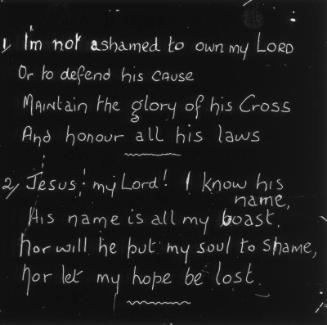 1, I'm not ashamed to own my LORD
Or to defend his cause
MAINTAIN the glory of his Cross
And honour all his laws
2, Jesus! my Lord! I know his
name,
His name is all my boast.
Nor will he put my soul to shame,
Nor let my hope be lost.